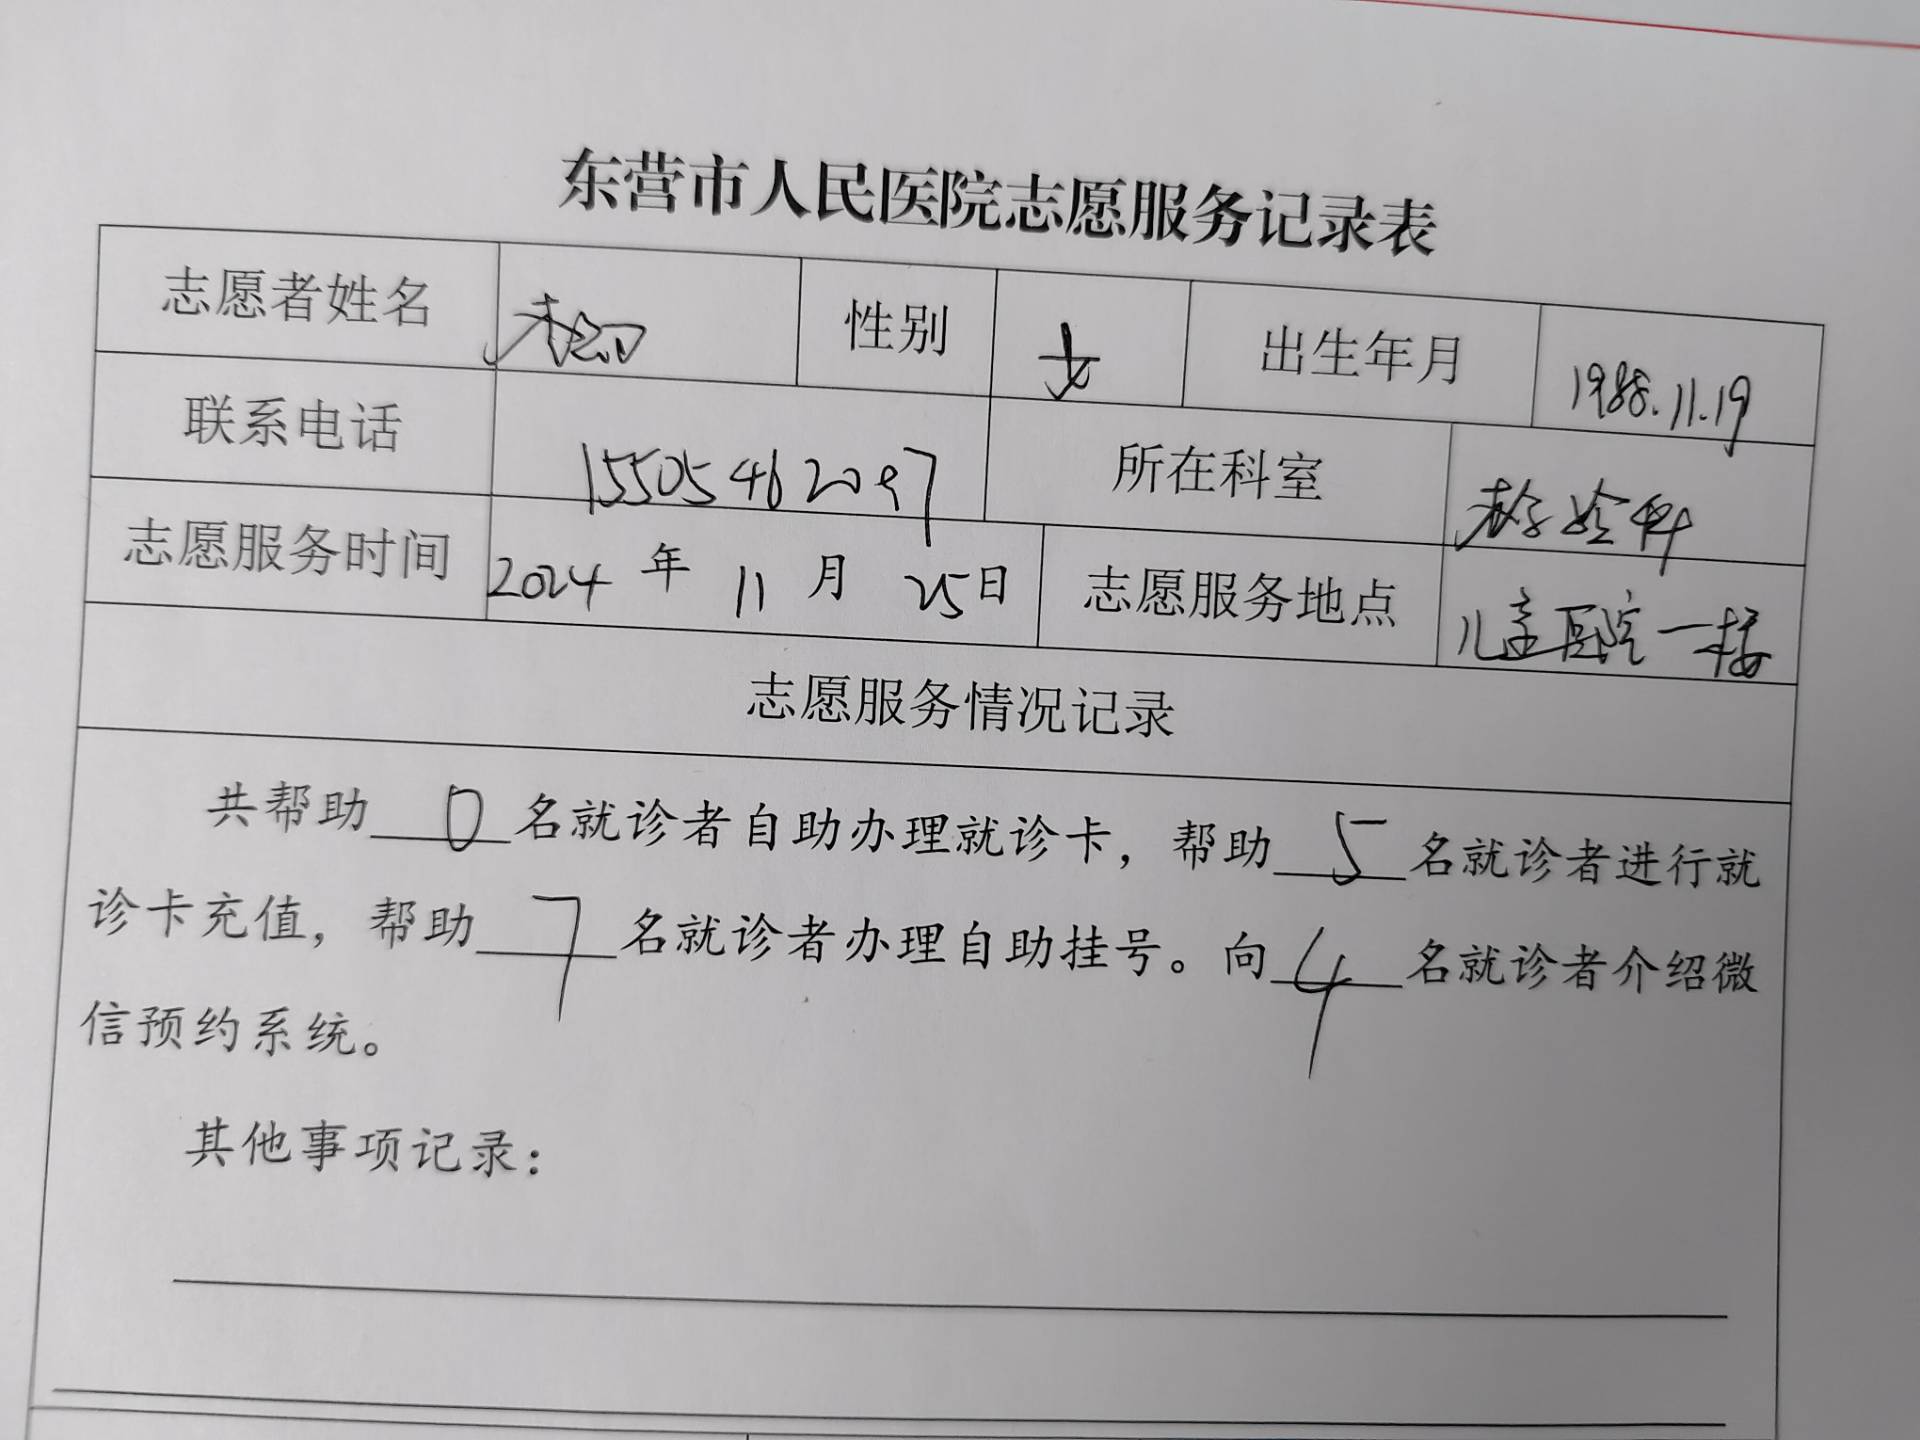 东营市人民医院志愿服务记录表
志愿者姓名 性别 女 出生年月 1988.11.19
联系电话 15505462097 所在科室 检验科
志愿服务时间 2024 年 11 月 25日 志愿服务地点 儿童医院一楼
志愿服务情况记录
共帮助 0 名就诊者自助办理就诊卡，帮助 5 名就诊者进行就
诊卡充值，帮助 7 名就诊者办理自助挂号。向 4 名就诊者介绍微
信预约系统。
其他事项记录：